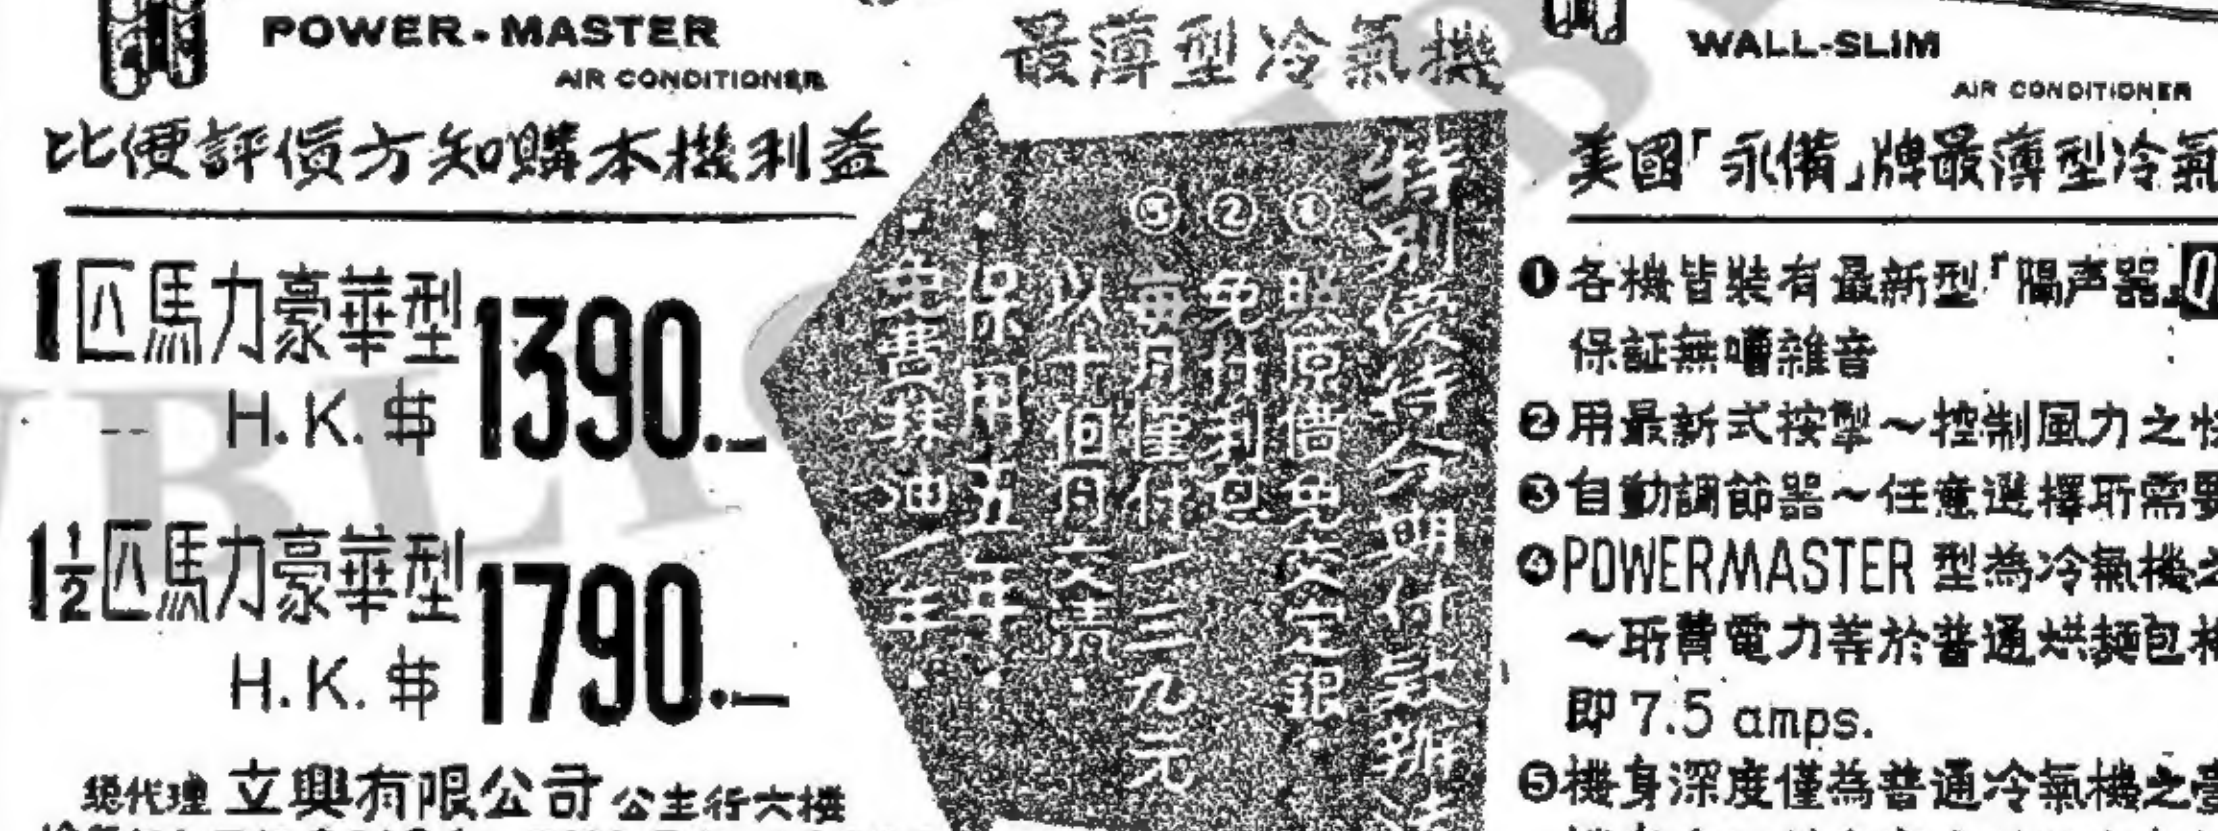 POWER-MASTER
AIR CONDITIONER
比便評價方知購本機利益
1匹馬力豪華型
H.K.$ 1390.—
1½匹馬力豪華型
H.K.$ 1790.—
總代理 立興有限公司 公主行六樓
最薄型冷氣機
特別優待分期付款辦法
①照原價免交定銀
②免付利息
③每月僅付一三九元
以十個月交清
·保用五年·
·免費抹油一年·
WALL-SLIM
AIR CONDITIONER
美國「永備」牌最薄型冷氣
❶各機皆裝有最新型「隔声器」
保証無嘈雜音
❷用最新式按掣～控制風力之快
❸自動調節器～任意選擇所需要
❹POWERMASTER 型為冷氣機之
～所費電力等於普通烘麵包
即 7.5 amps.
❺機身深度僅為普通冷氣機之壹